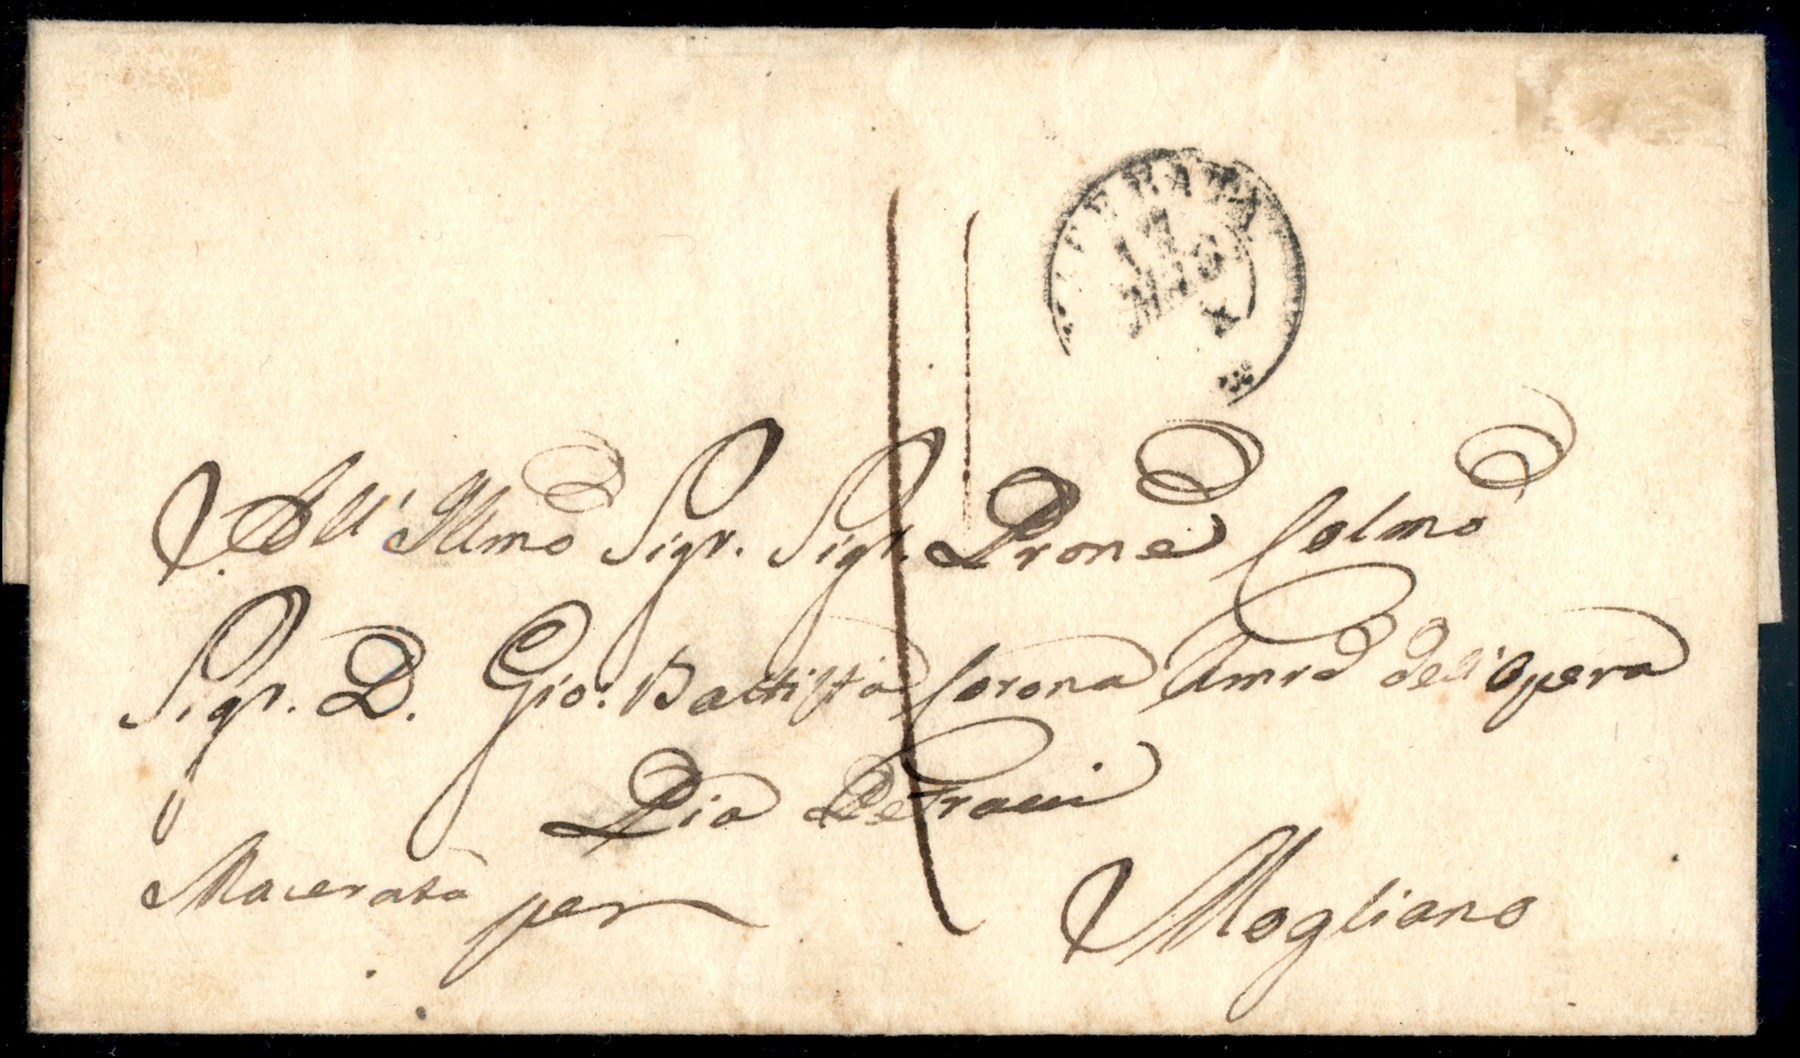 MACERATA
17
MAG
All' Illmo Sigr. Sigr. Prone Colmo
Sigr. D. Gio: Battista Corona Amre dell'Opera
Pia
Macerata per Mogliano